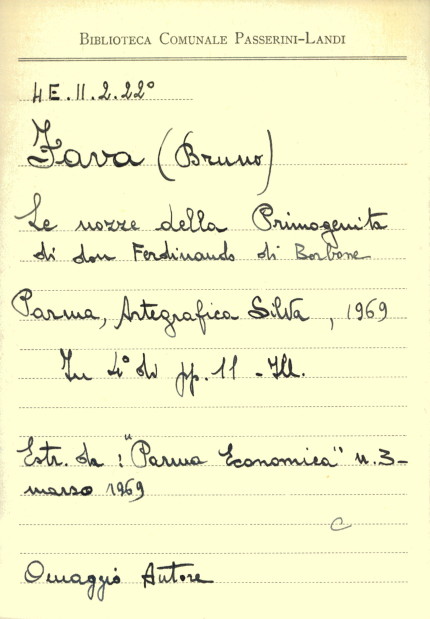 BIBLIOTECA COMUNALE PASSERINI-LANDI
4E.II.2.22°
Zava (Bruno)
Le nozze della Primogenita
di don Ferdinando di Borbone
Parma, Artegrafica Silva, 1969
In 4° di pp. 11 - Ill.
Estr. da: "Parma Economica" n. 3-
marzo 1969
C
Omaggio Autore